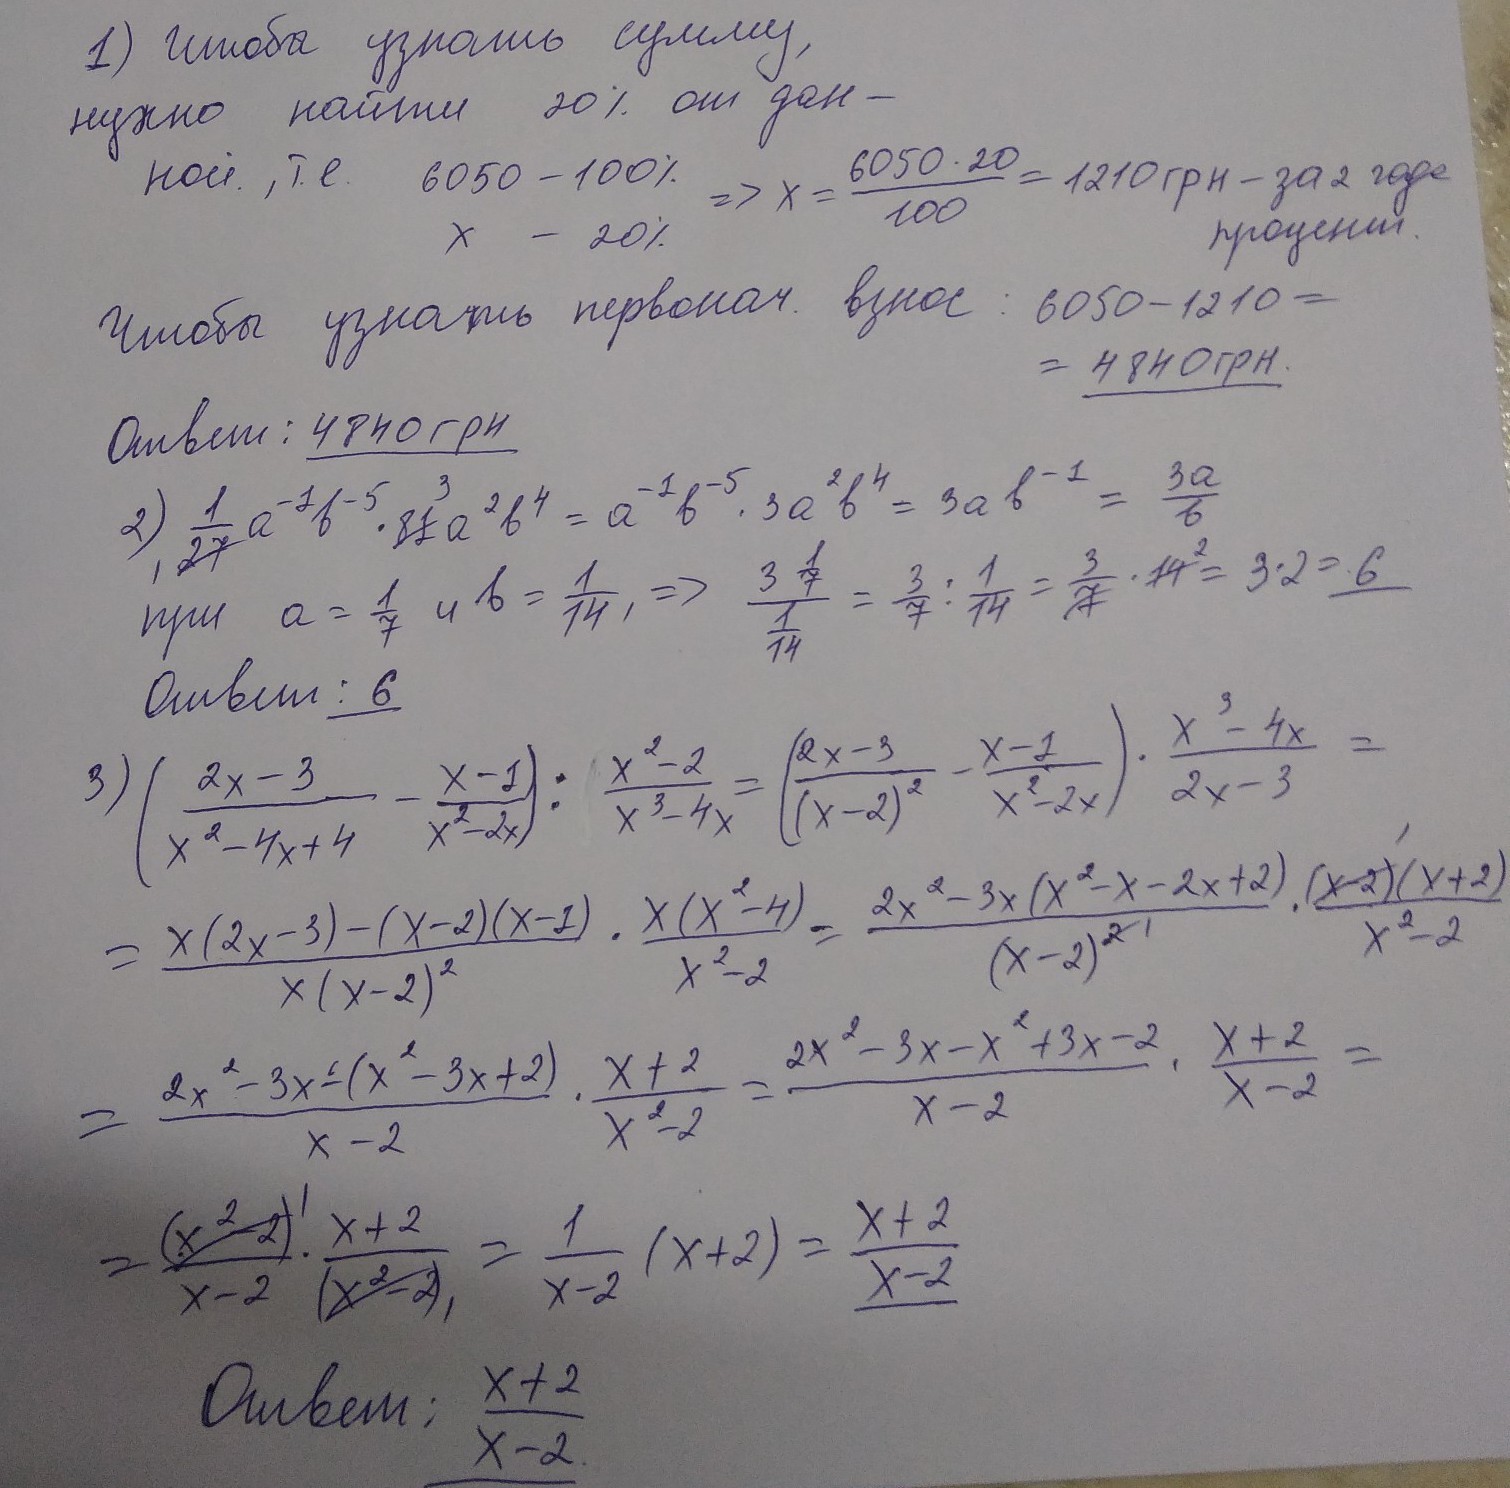 1) Чтобы узнать сумму,
нужно найти 20% от дан-
ной., т.е. 6050 – 100% => x = 6050·20/100 = 1210 грн – за 2 года
x – 20% процент.
Чтобы узнать первонач. взнос: 6050 – 1210 =
= 4840 грн.
Ответ: 4840 грн
2) 1/27 a⁻¹b⁻⁵ · 81³a²b⁴ = a⁻¹b⁻⁵ · 3a²b⁴ = 3ab⁻¹ = 3a/b
при a = 1/7 и b = 1/14, => (3 1/7)/(1/14) = 3/7 : 1/14 = 3/7 · 14² = 3·2 = 6
Ответ: 6
3) ((2x–3)/(x²–4x+4) – (x–1)/(x²–2x)) : (x²–2)/(x³–4x) = ((2x–3)/(x–2)² – (x–1)/(x²–2x)) · (x³–4x)/(2x–3) =
= (x(2x–3)–(x–2)(x–1))/(x(x–2)²) · x(x²–4)/(x²–2) = (2x²–3x(x²–x–2x+2))/(x–2)² · (x–2)(x+2)/(x²–2)
= (2x²–3x–(x²–3x+2))/(x–2) · (x+2)/(x²–2) = (2x²–3x–x²+3x–2)/(x–2) · (x+2)/(x–2) =
= (x²–2)/(x–2) · (x+2)/(x²–2) = 1/(x–2) (x+2) = (x+2)/(x–2)
Ответ: (x+2)/(x–2)